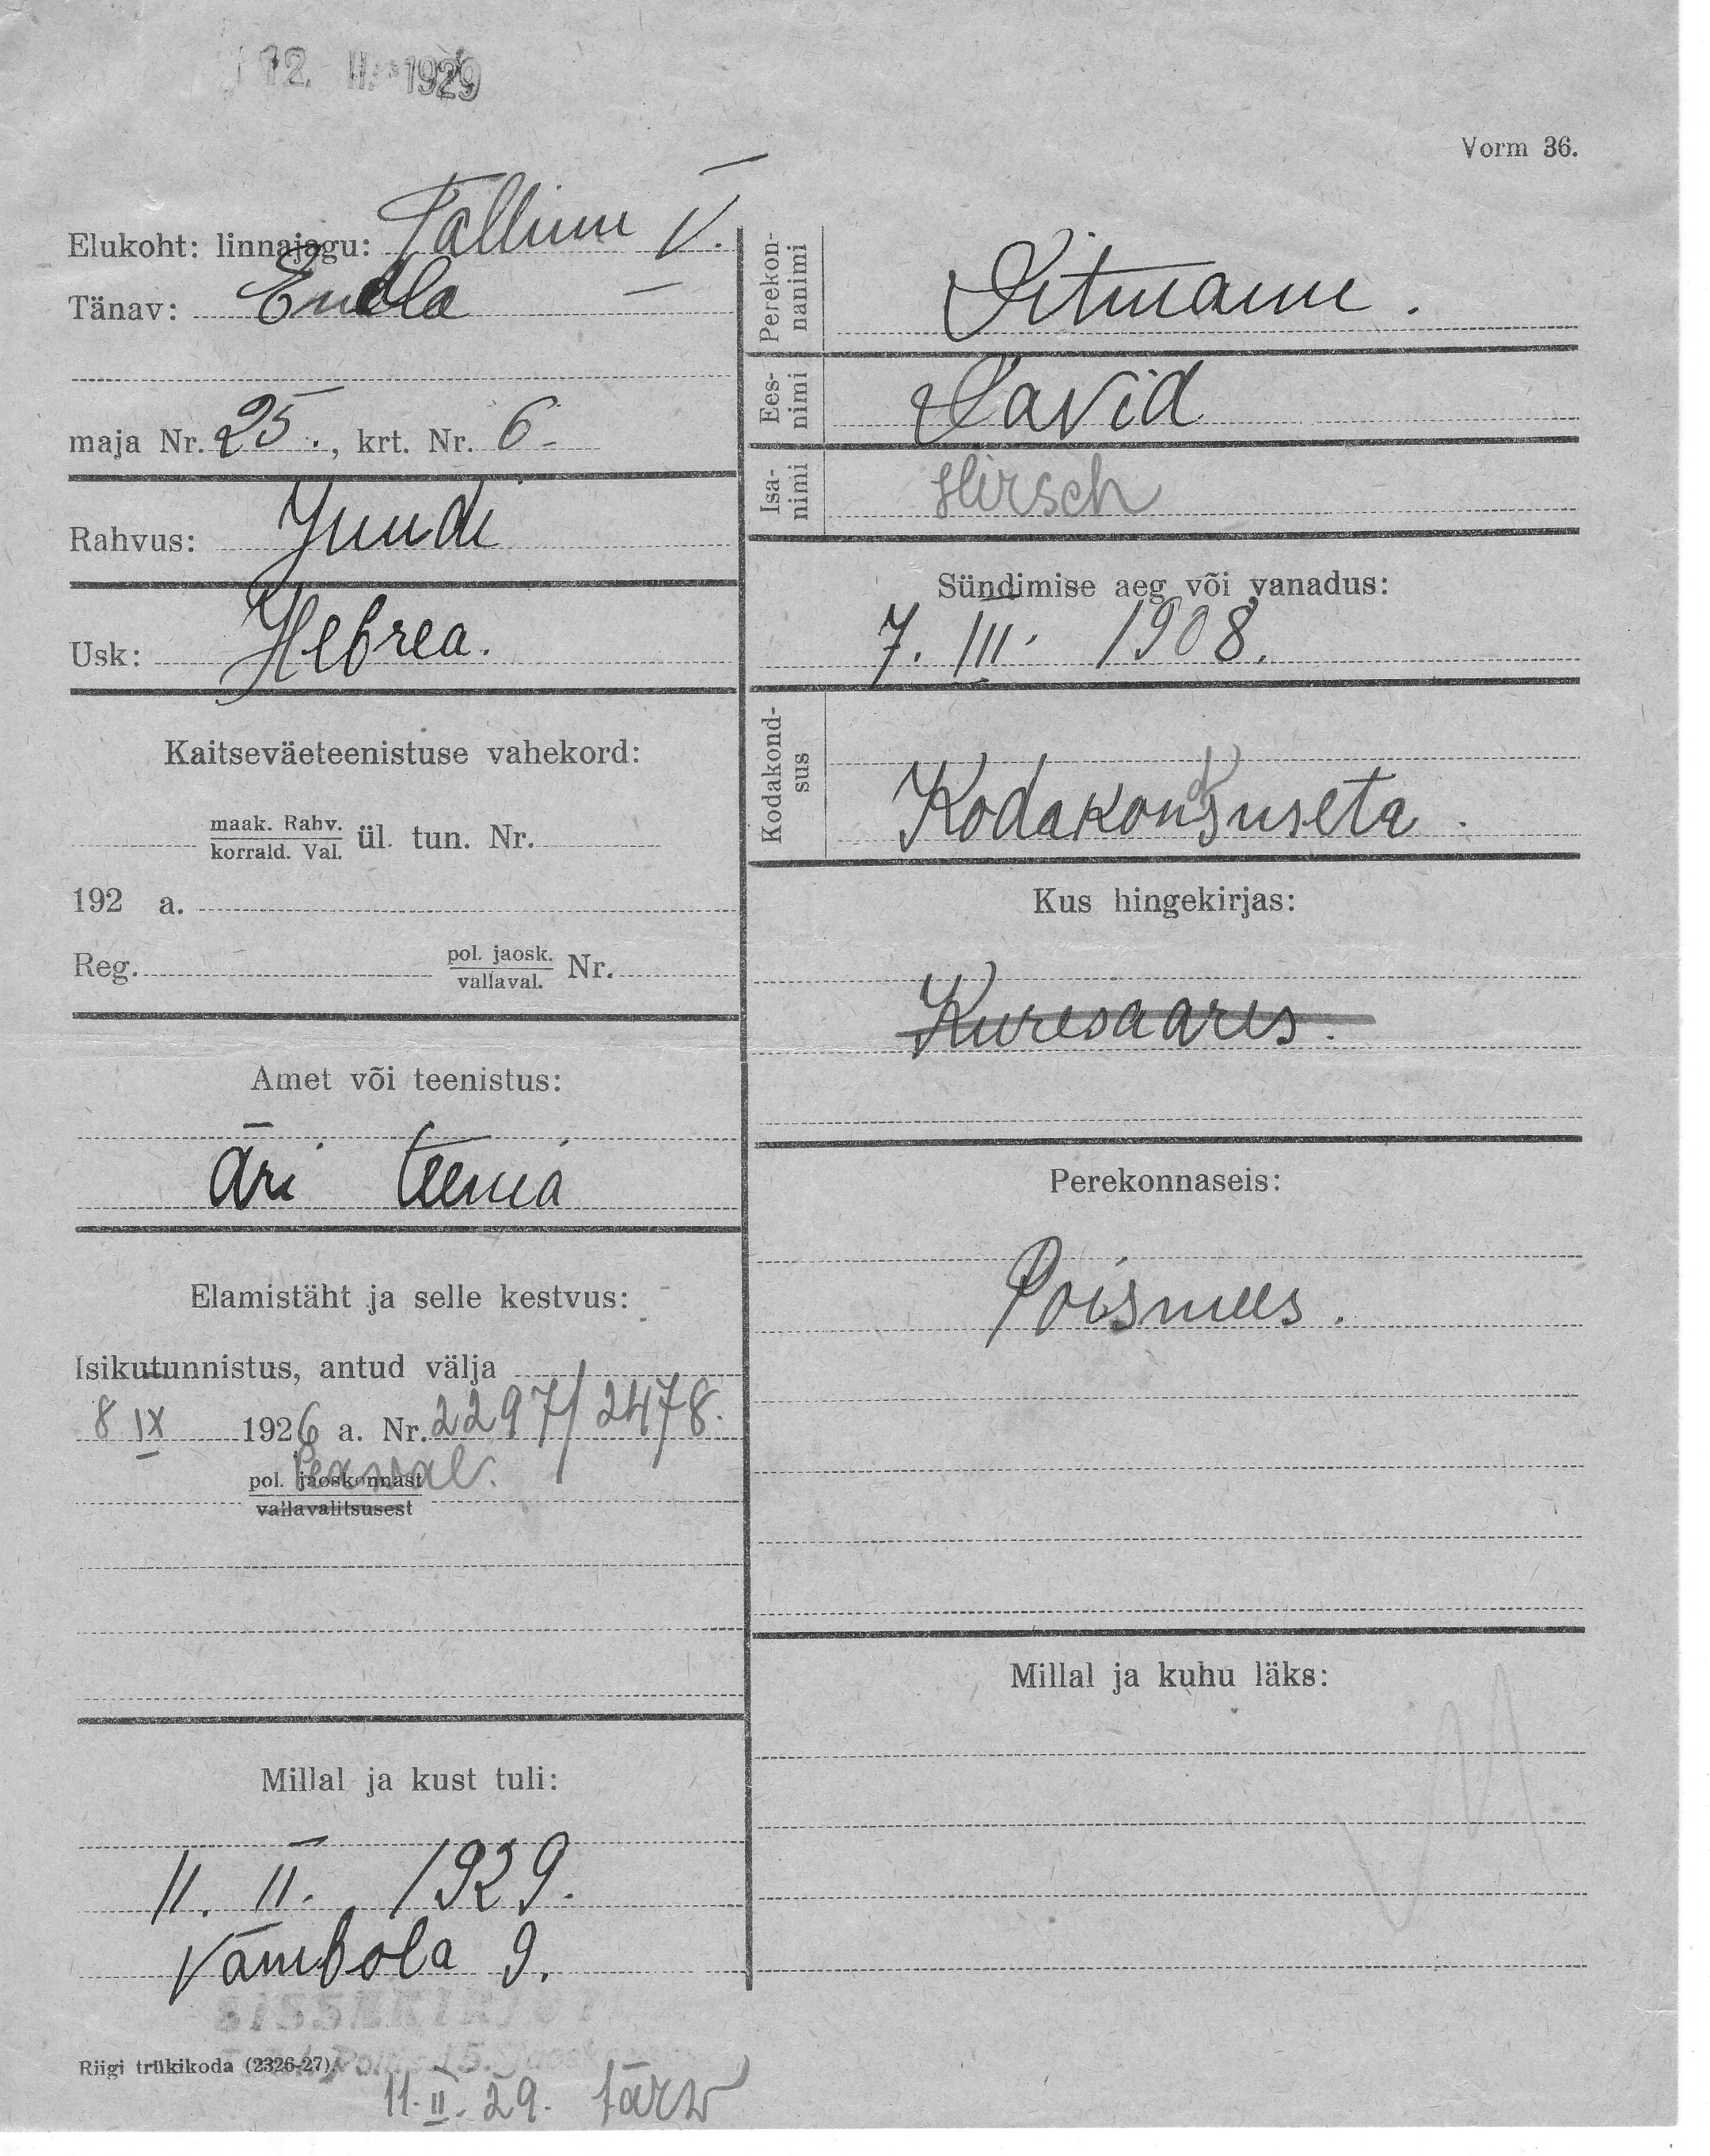 12. II. 1929
Vorm 36.
Elukoht: linnajagu: Tallinn V.
Tänav: Endla —
maja Nr. 25., krt. Nr. 6.
Rahvus: Juudi
Usk: Hebrea.
Kaitseväeteenistuse vahekord:
maak. Rahv.
korrald. Val. ül. tun. Nr.
192 a.
Reg. pol. jaosk.
vallaval. Nr.
Amet või teenistus:
Äri teenia
Elamistäht ja selle kestvus:
Isikutunnistus, antud välja
8 IX 1926 a. Nr. 2297/2478.
pol. jaoskonnast
vallavalitsusest
Millal ja kust tuli:
11. II. 1929.
Vambola 9.
SISSEKIRJUT
Riigi trükikoda (2326-27).
11. II. 29.
Perekon-
nanimi
Ditmann.
Ees-
nimi
David
Isa-
nimi
Hirsch
Sündimise aeg või vanadus:
7. III. 1908.
Kodakond-
sus
Kodakondsuseta.
Kus hingekirjas:
Kuresaares.
Perekonnaseis:
Poismees.
Millal ja kuhu läks: